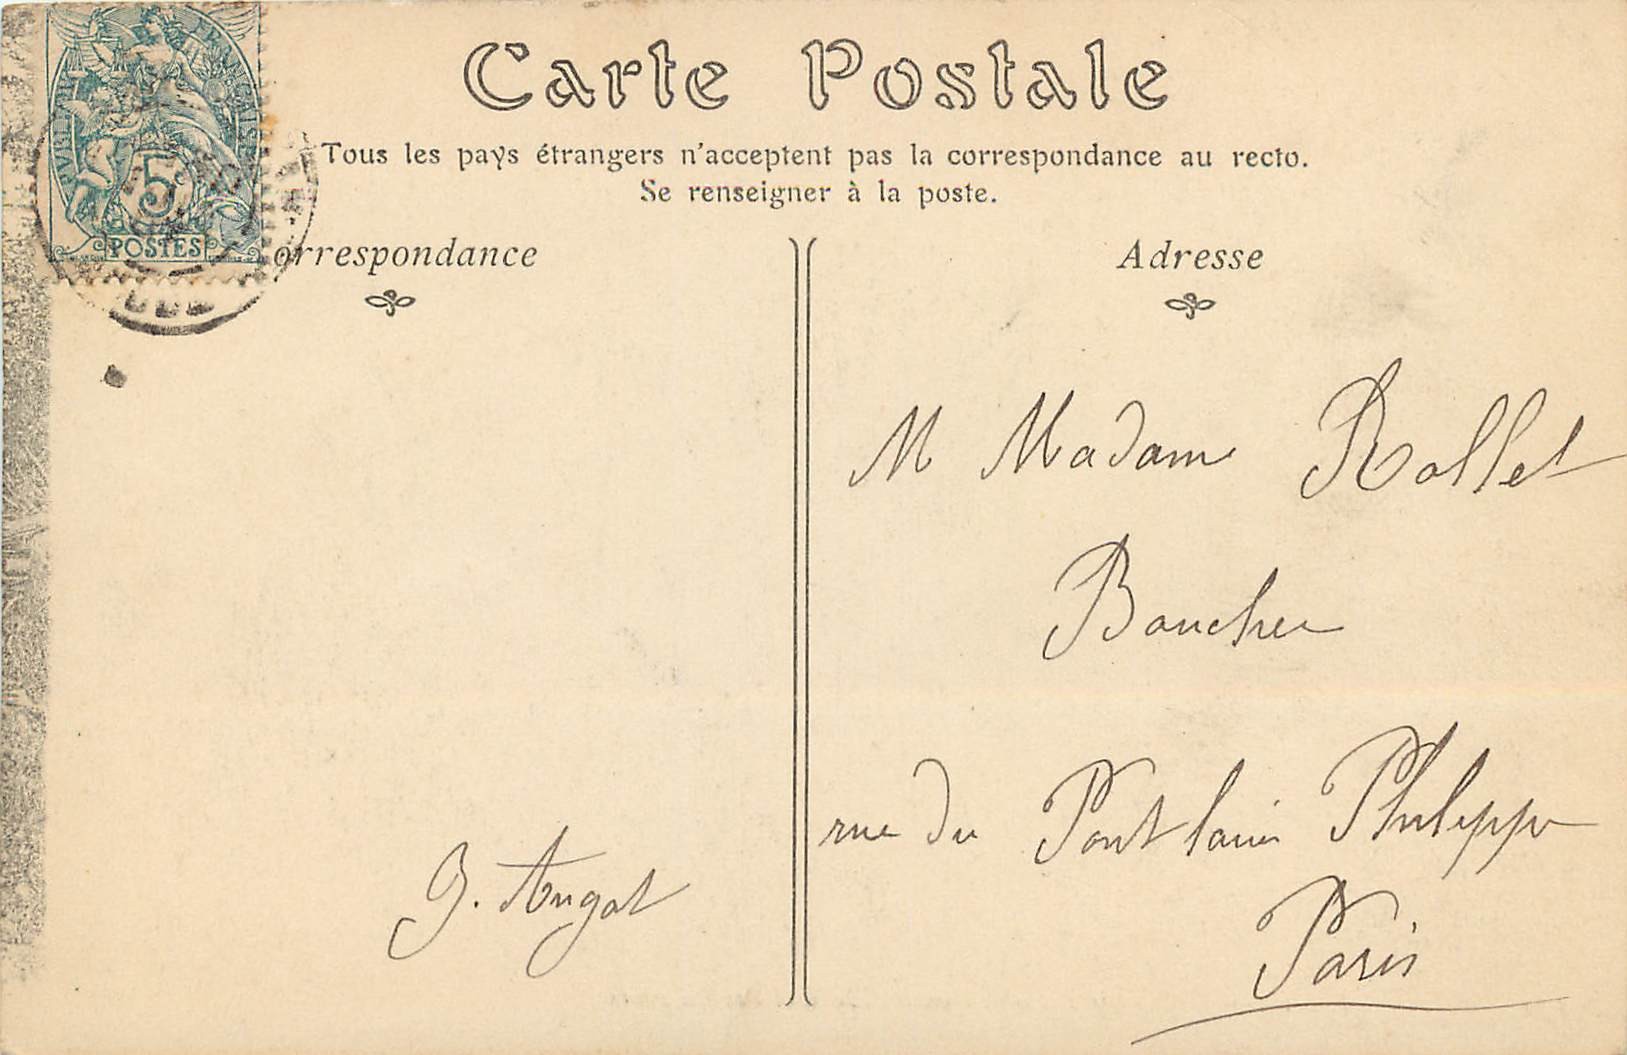 Carte Postale
Tous les pays étrangers n'acceptent pas la correspondance au recto.
Se renseigner à la poste.
orrespondance
Adresse
5c
POSTES
M Madame Rollet
Boucher
rue du Pont Louis Philippe
Paris
J. Angot